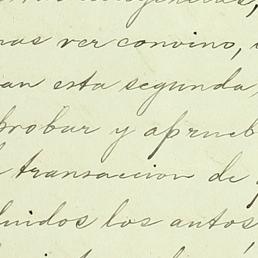 mas ver convino,
an esta segunda,
probar y aprueb
transaccion de
luidos los autos